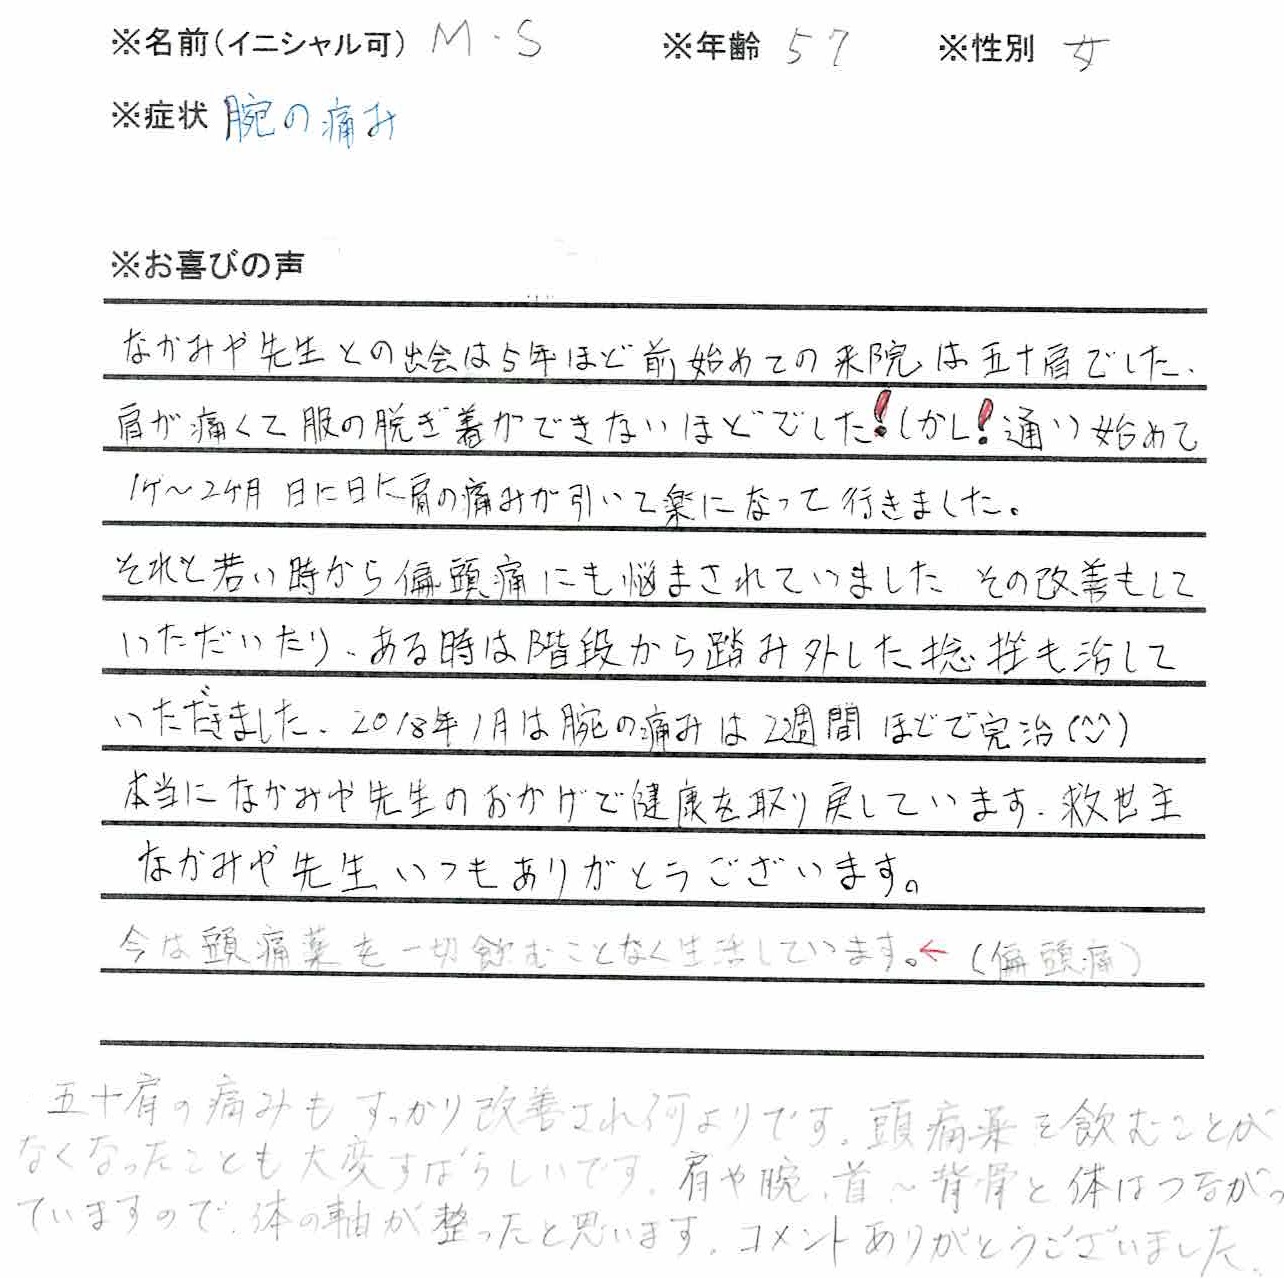 ※名前(イニシャル可) M・S ※年齢 57 ※性別 女
※症状 腕の痛み
※お喜びの声
なかみや先生との出会は5年ほど前始めての来院は五十肩でした、
肩が痛くて服の脱ぎ着ができないほどでした!しかし!通い始めて
1ヶ〜2ヶ月 日に日に肩の痛みが引いて楽になって行きました。
それと若い時から偏頭痛にも悩まされていました その改善もして
いただいたり、ある時は階段から踏み外した捻挫も治して
いただきました、2018年1月は腕の痛みは2週間ほどで完治(^^)
本当になかみや先生のおかげで健康を取り戻しています、救世主
なかみや先生いつもありがとうございます。
今は頭痛薬を一切飲むことなく生活しています。←(偏頭痛)
五十肩の痛みもすっかり改善され何よりです。頭痛薬を飲むことが
なくなったことも大変すばらしいです。肩や腕、首〜背骨と体はつながっ
ていますので、体の軸が整ったと思います。コメントありがとうございました。